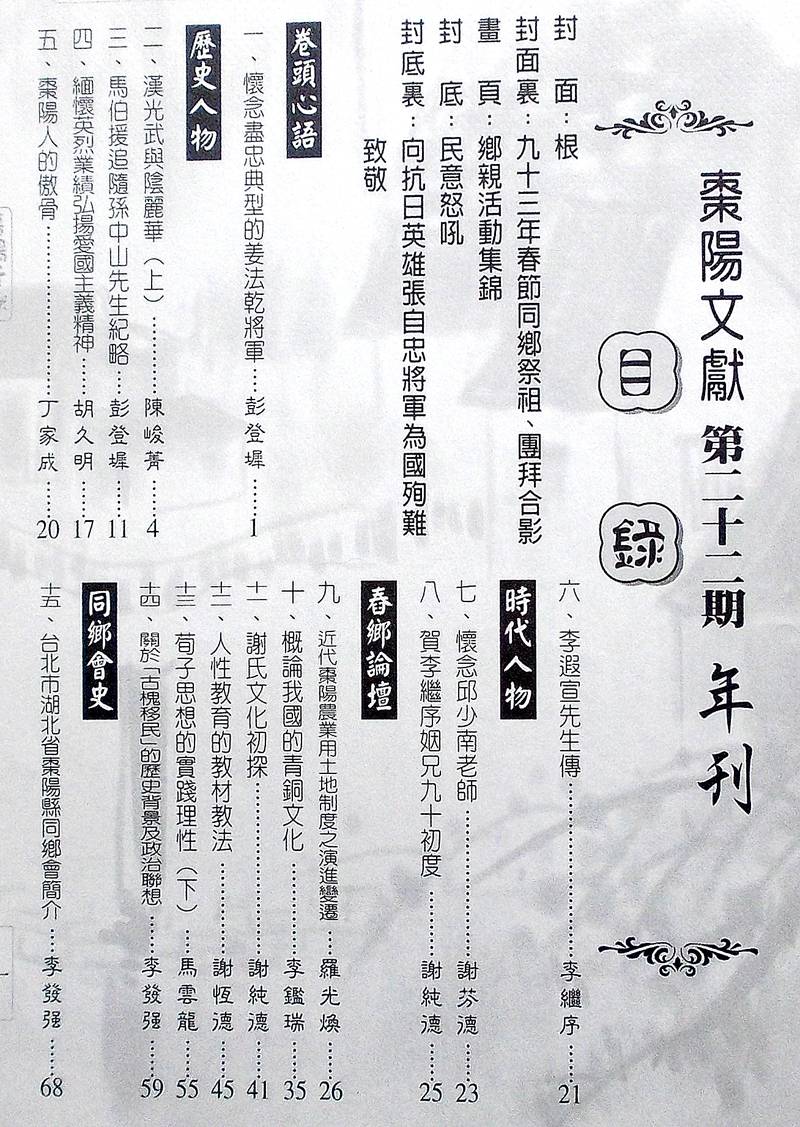 棗陽文獻 第二十二期 年刊
目錄
封面：根
封面裏：九十三年春節同鄉祭祖、團拜合影
畫頁：鄉親活動集錦
封底：民意怒吼
封底裏：向抗日英雄張自忠將軍為國殉難
致敬
卷頭心語
一、懷念盡忠典型的姜法乾將軍……彭登墀……1
歷史人物
二、漢光武與陰麗華（上）…………陳峻菁……4
三、馬伯援追隨孫中山先生紀略…彭登墀……11
四、緬懷英烈業績弘揚愛國主義精神……胡久明……17
五、棗陽人的傲骨…………………丁家成……20
六、李遐宣先生傳…………………李繼序……21
時代人物
七、懷念邱少南老師………………謝芬德……23
八、賀李繼序姻兄九十初度………謝純德……25
春鄉論壇
九、近代棗陽農業用土地制度之演進變遷…羅光煥……26
十、概論我國的青銅文化…………李鑑瑞……35
十一、謝氏文化初探…………………謝純德……41
十二、人性教育的教材教法…………謝恆德……45
十三、荀子思想的實踐理性（下）……馬雲龍……55
十四、關於「古槐移民」的歷史背景及政治聯想……李發强……59
同鄉會史
十五、台北市湖北省棗陽縣同鄉會簡介……李發强……68